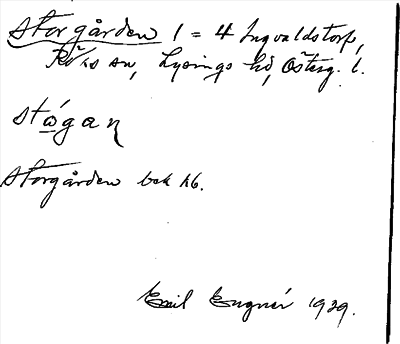 Storgården 1 = 4 Ingvaldstorp,
Röks sn, Lysings hd, Österg. l.
stǿgaɳ
Storgården bek hb.
Emil Engnér 1939.